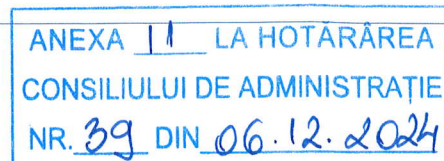 ANEXA 11 LA HOTĂRÂREA
CONSILIULUI DE ADMINISTRAŢIE
NR. 39 DIN 06.12.2024